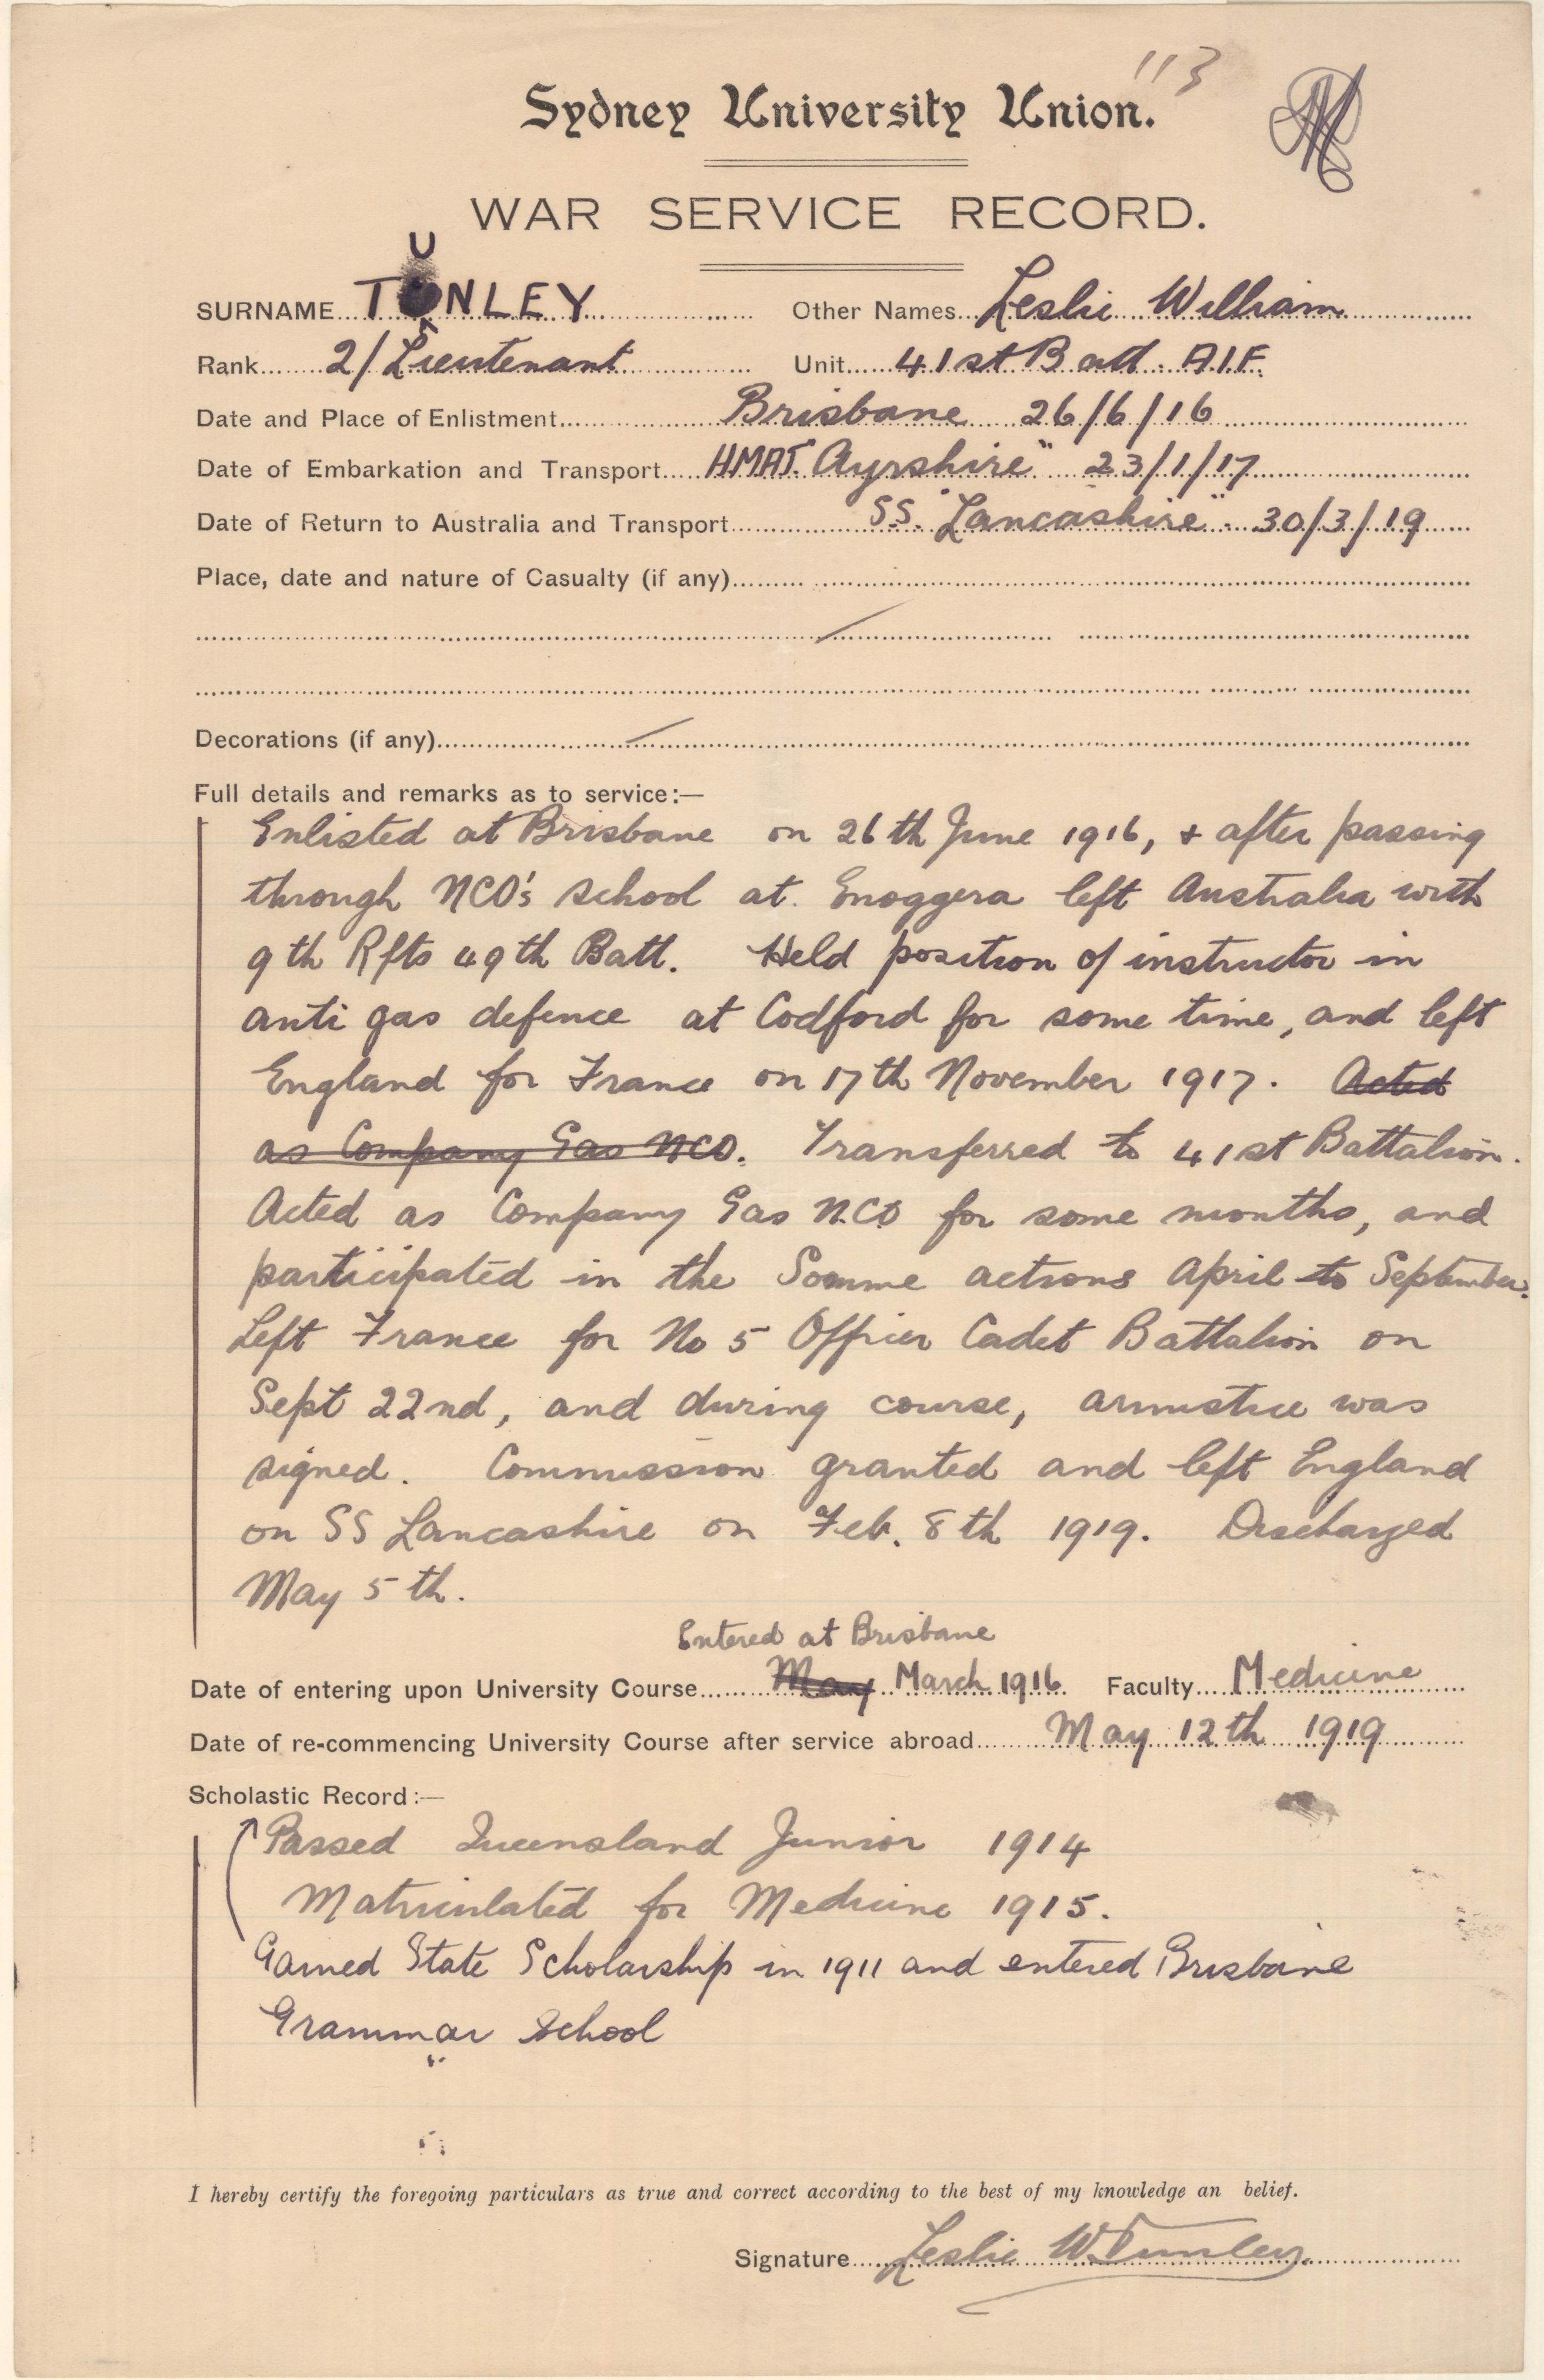 113
Sydney University Union.
WAR SERVICE RECORD.
U
SURNAME TUNLEY Other Names Leslie William
Rank 2/Lieutenant Unit 41st Batt. A.I.F.
Date and Place of Enlistment Brisbane 26/6/16
Date of Embarkation and Transport HMAT. Ayrshire" 23/1/17
Date of Return to Australia and Transport SS. "Lancashire" 30/3/19
Place, date and nature of Casualty (if any)
Decorations (if any)
Full details and remarks as to service:—
Enlisted at Brisbane on 26th June 1916, & after passing
through NCO's school at Enoggera left Australia with
9th Rfts 49th Batt. Held position of instructor in
anti gas defence at Codford for some time, and left
England for France on 17th November 1917. Acted
as Company Gas NCO. Transferred to 41st Battalion.
Acted as Company Gas N.C.O for some months, and
participated in the Somme actions April to September.
Left France for No 5 Officer Cadet Battalion on
Sept 22nd, and during course, armistice was
signed. Commission granted and left England
on SS Lancashire on Feb. 8th 1919. Discharged
May 5th.
Entered at Brisbane
Date of entering upon University Course May March 1916 Faculty Medicine
Date of re-commencing University Course after service abroad May 12th 1919
Scholastic Record:—
Passed Queensland Junior 1914
Matriculated for Medicine 1915.
Gained State Scholarship in 1911 and entered Brisbane
Grammar School
I hereby certify the foregoing particulars as true and correct according to the best of my knowledge an belief.
Signature Leslie W Tunley